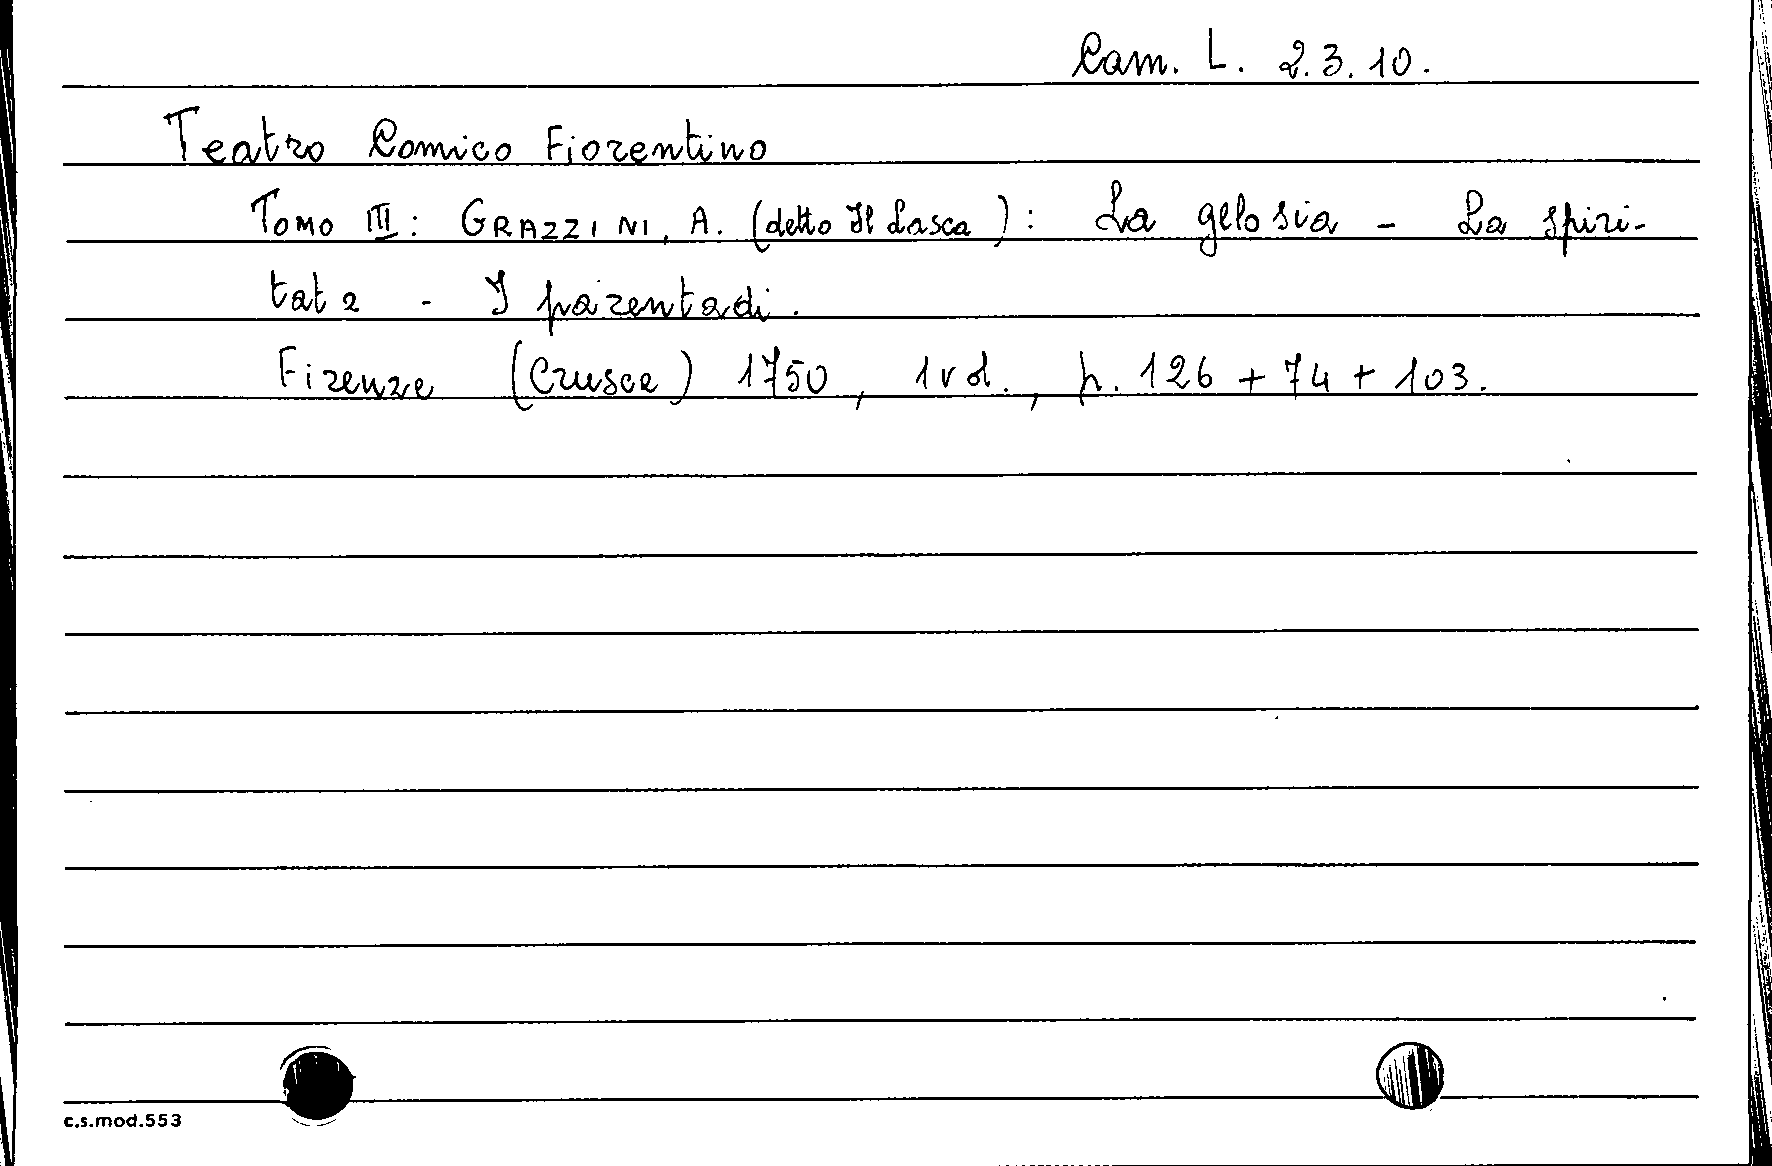 Cam. L. 2.3.10.
Teatro Comico Fiorentino
Tomo III: GRAZZINI, A. (detto Il Lasca): La gelosia - La spiri-
tata - I parentadi.
Firenze (Crusca) 1750, 1 vol., p. 126 + 74 + 103.
c.s.mod.553